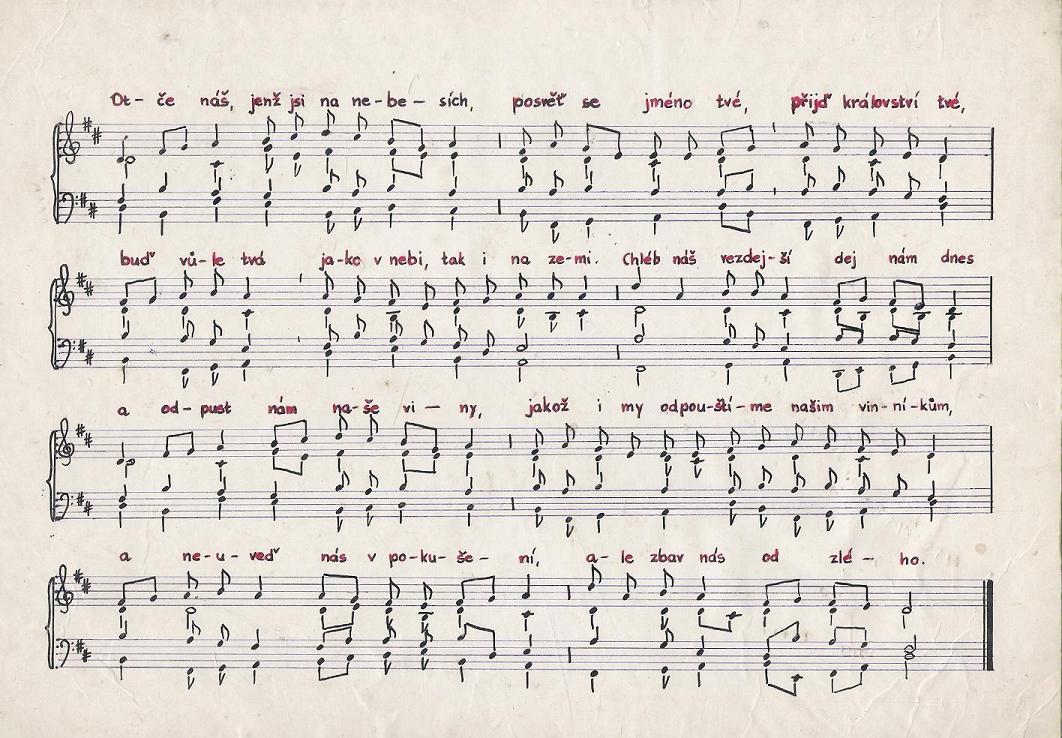 Ot- če náš, jenž jsi na ne-be- sích, posvěť se jméno tvé, přijď království tvé,
buď vů-le tvá ja-ko v nebi, tak i na ze-mi. Chléb náš vezdej-ší dej nám dnes
a od-pusť nám na-še vi-ny, jakož i my odpou-ští-me našim vin-ní-kům,
a ne-u-veď nás v po-ku-še-ní, a-le zbav nás od zlé-ho.